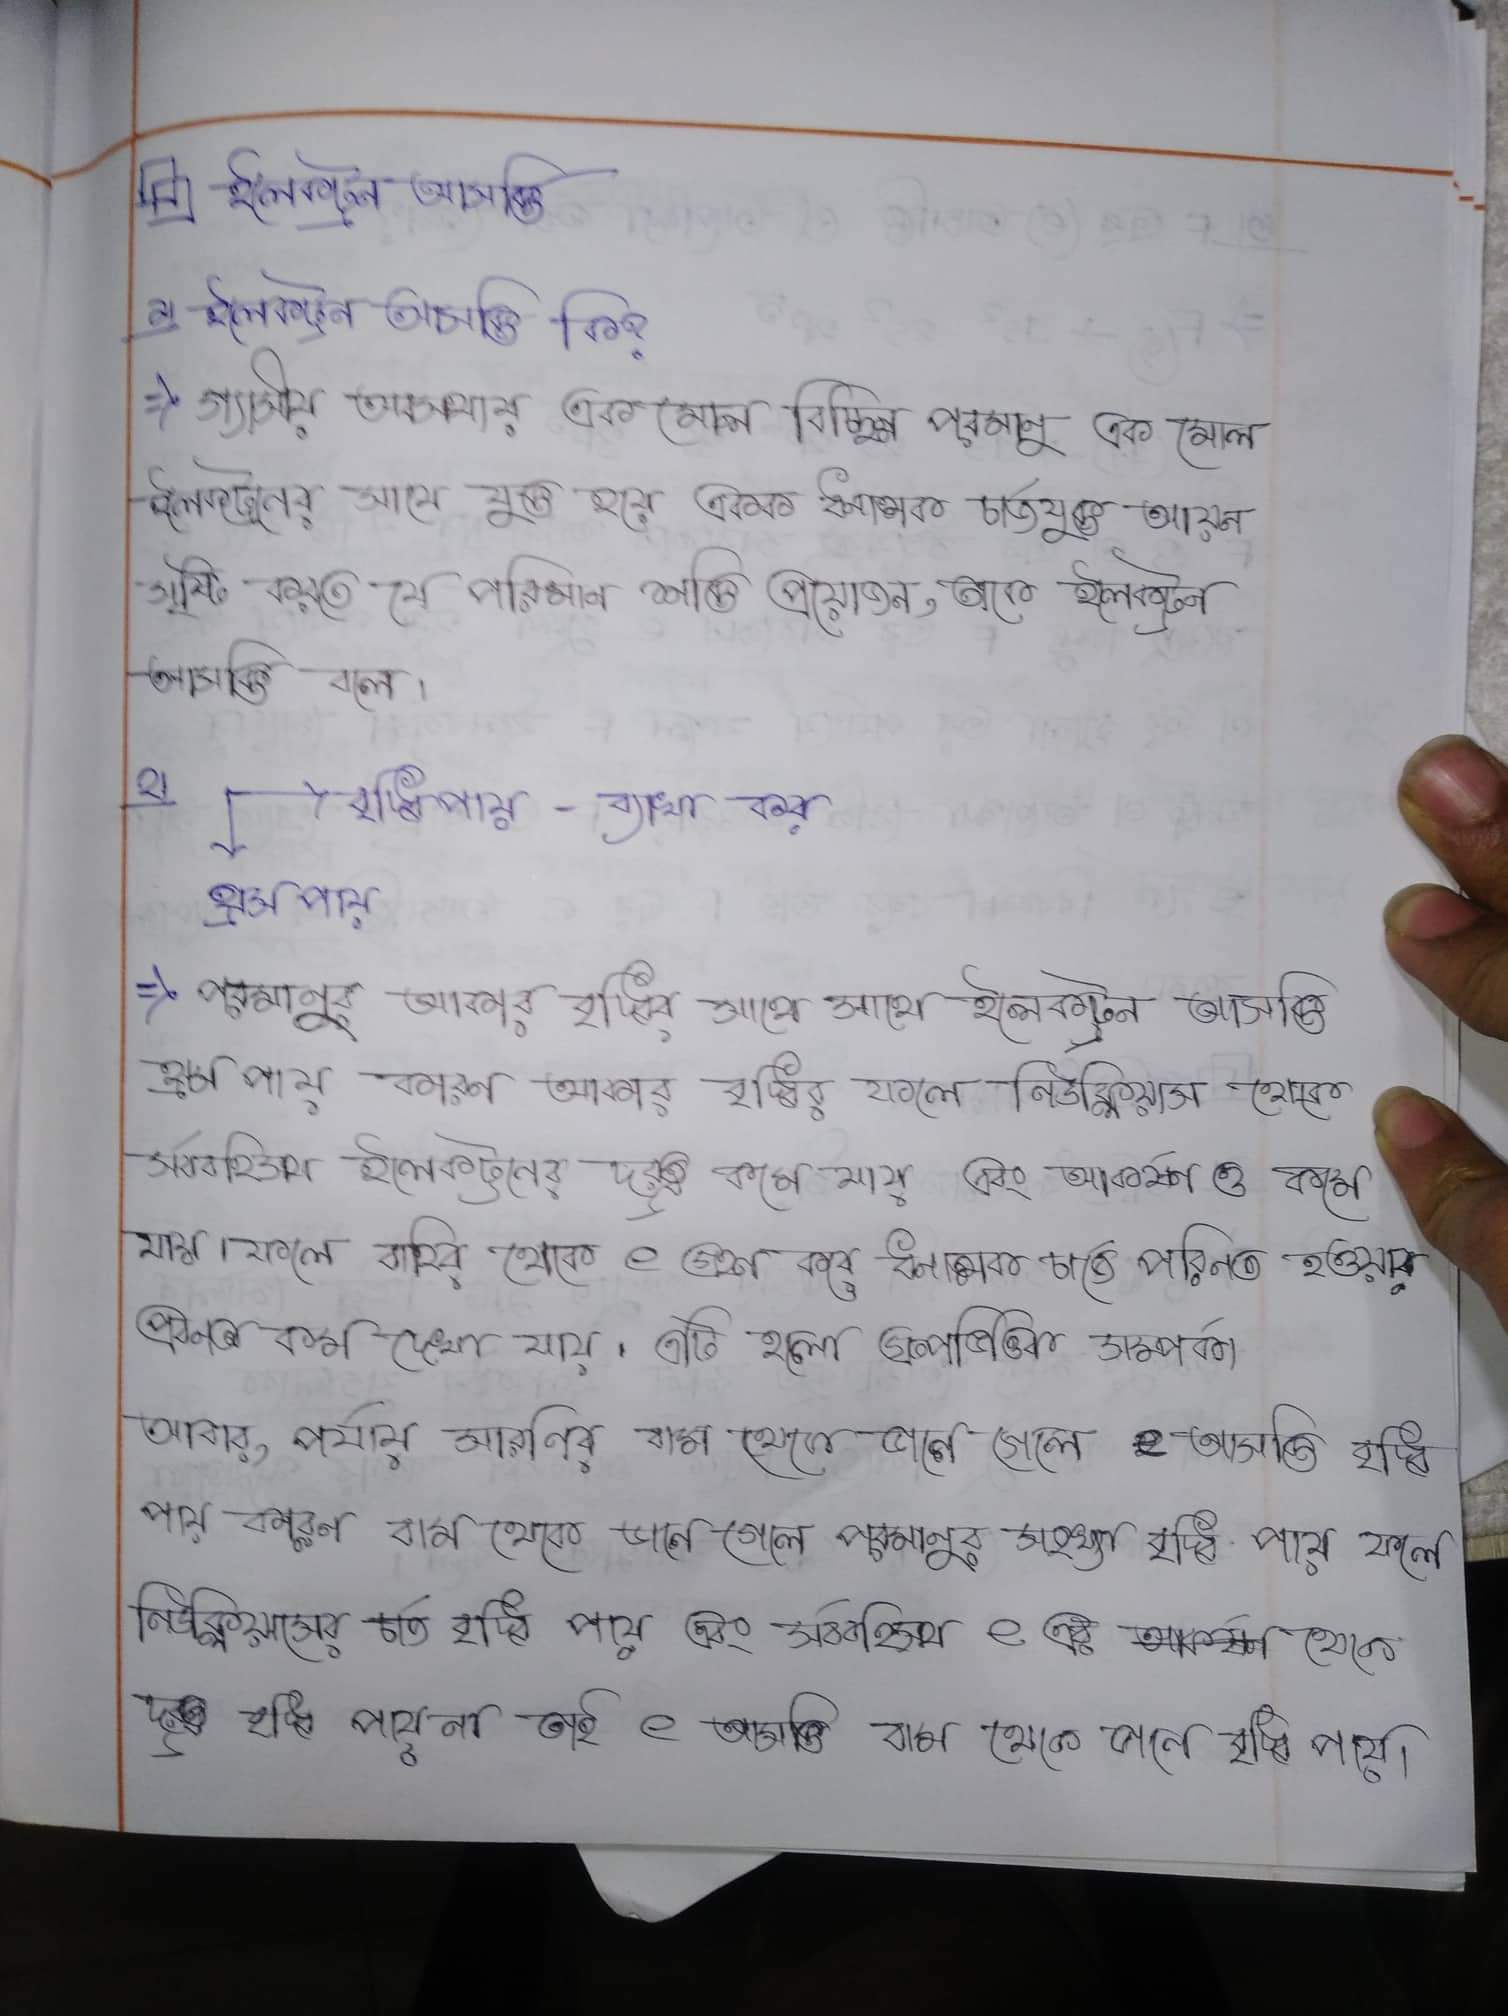 ইলেকট্রন আসক্তি
১। ইলেকট্রন আসক্তি কি?
⇒ গ্যাসীয় অবস্থায় এক মোল বিচ্ছিন্ন পরমানু এক মোল
ইলেকট্রনের সাথে যুক্ত হয়ে একক ঋনাত্মক চার্জযুক্ত আয়ন
সৃষ্টি করতে যে পরিমান শক্তি প্রয়োজন, তাকে ইলেকট্রন
আসক্তি বলে।
২। → বৃদ্ধি পায় - ব্যাখা কর
হ্রাস পায়
⇒ পরমানুর আকার বৃদ্ধির সাথে সাথে ইলেকট্রন আসক্তি
হ্রাস পায় কারন আকার বৃদ্ধির ফলে নিউক্লিয়াস থেকে
সর্ববহিস্থ ইলেকট্রনের দূরত্ব কমে যায় এবং আকর্ষণ ও কমে
যায়। ফলে বাহির থেকে e গ্রহন করে ঋনাত্মক চার্জে পরিনত হওয়ার
প্রবনতা কম দেখা যায়। এটি হলো গ্রুপভিত্তিক সম্পর্ক।
আবার, পর্যায় সারণির বাম থেকে ডানে গেলে e আসক্তি বৃদ্ধি
পায় কারন বাম থেকে ডানে গেলে পরমানুর সংখ্যা বৃদ্ধি পায় ফলে
নিউক্লিয়াসের চার্জ বৃদ্ধি পায় এবং সর্ববহিস্থ e এর আকর্ষন থেকে
দূরত্ব বৃদ্ধি পায় না তাই e আসক্তি বাম থেকে ডানে বৃদ্ধি পায়।